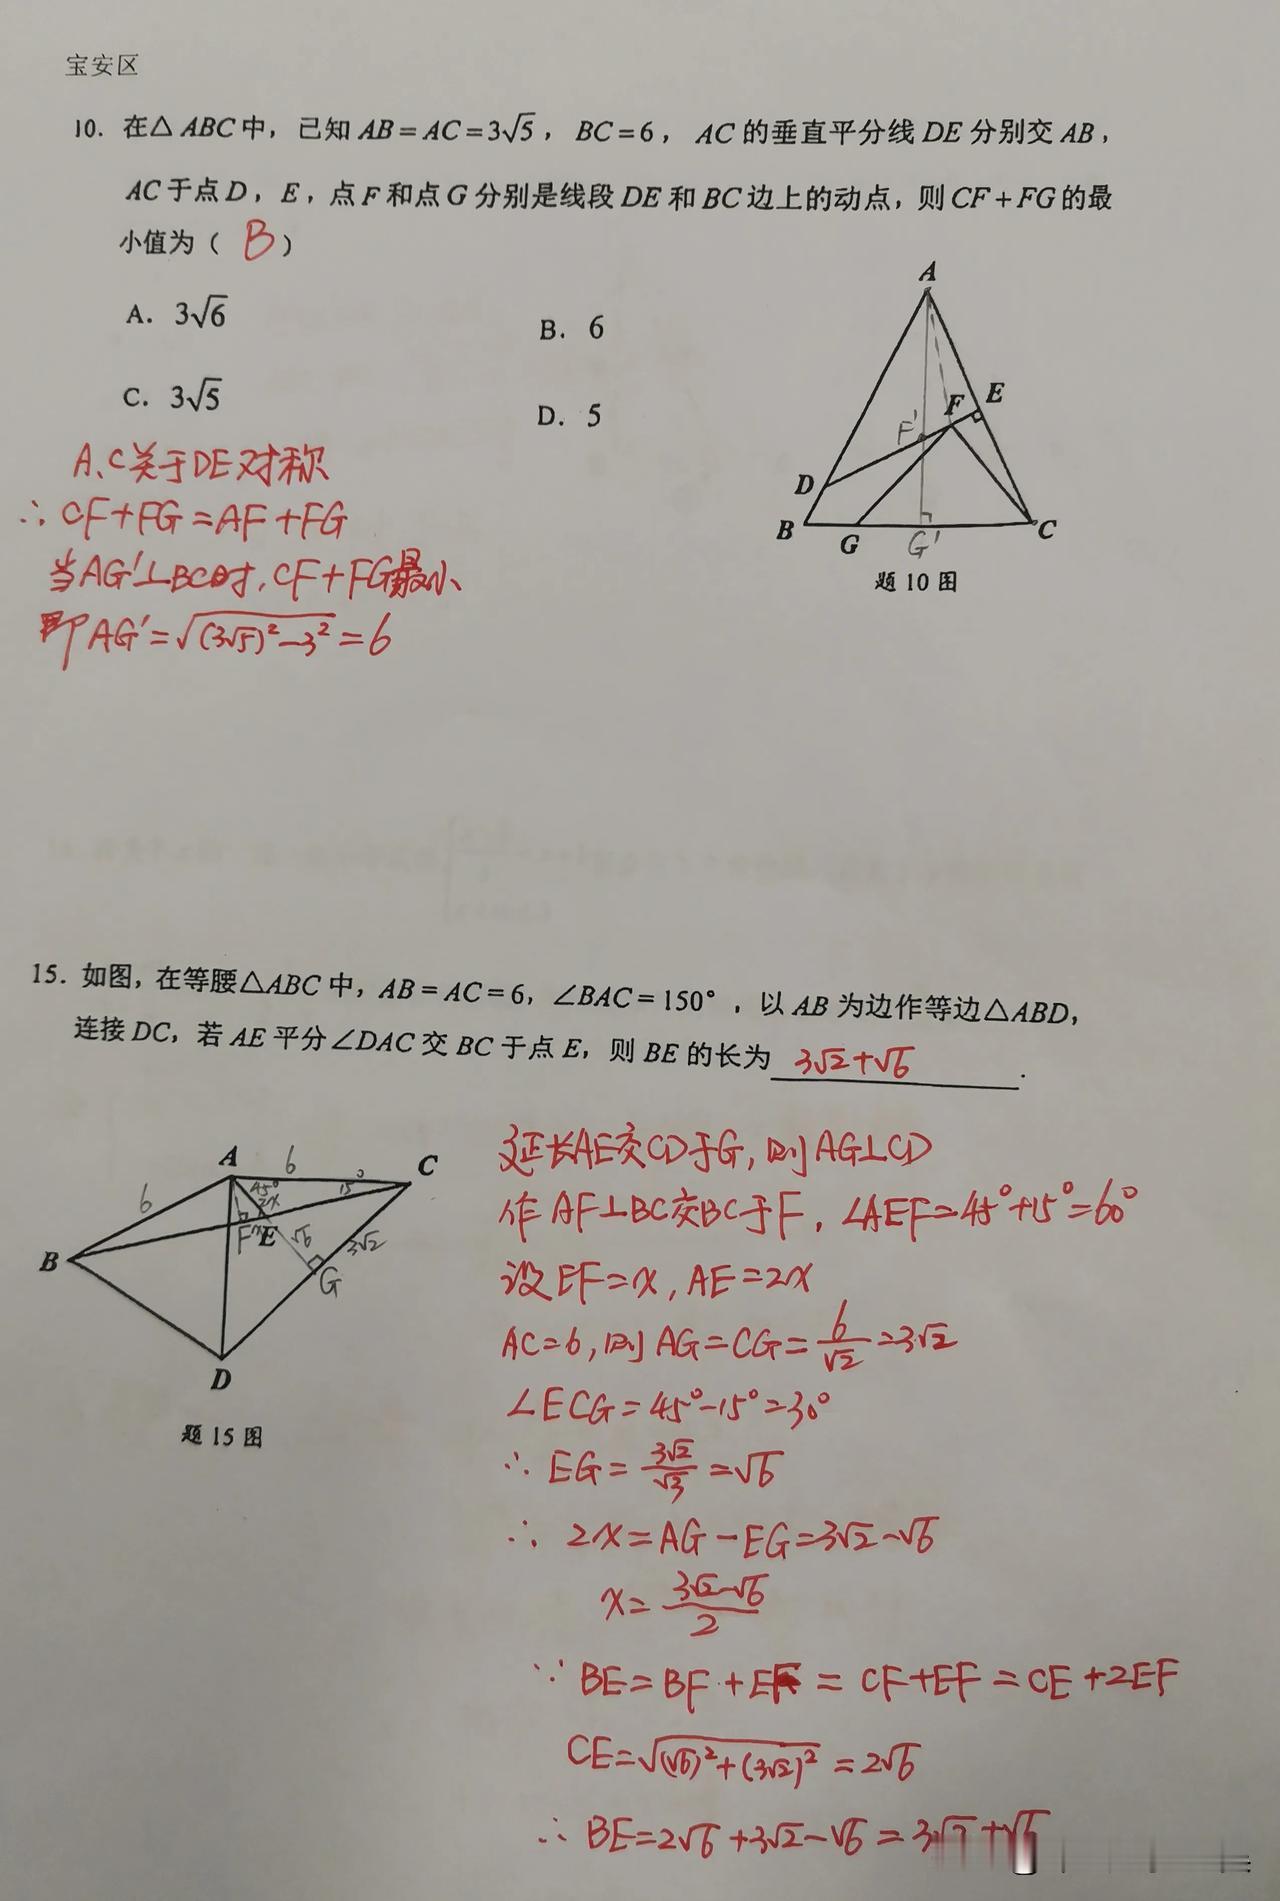 宝安区
10. 在△ABC中，已知AB=AC=3√5，BC=6，AC的垂直平分线DE分别交AB，
AC于点D，E，点F和点G分别是线段DE和BC边上的动点，则CF+FG的最
小值为（ B ）
A. 3√6
B. 6
C. 3√5
D. 5
A
E
F
F'
D
B
G
G'
C
题10图
A、C关于DE对称
∴ CF+FG=AF+FG
当AG'⊥BC时，CF+FG最小
即AG'=√((3√5)²-3²)=6
15. 如图，在等腰△ABC中，AB=AC=6，∠BAC=150°，以AB为边作等边△ABD，
连接DC，若AE平分∠DAC交BC于点E，则BE的长为 3√2+√6 .
A
6
C
6
45°
15°
2x
B
F
x
E
√6
3√2
G
D
题15图
延长AE交CD于G，则AG⊥CD
作AF⊥BC交BC于F，∠AEF=45°+15°=60°
设EF=x，AE=2x
AC=6，则AG=CG=6/√2=3√2
∠ECG=45°-15°=30°
∴ EG=3√2/√3=√6
∴ 2x=AG-EG=3√2-√6
x=(3√2-√6)/2
∵ BE=BF+EF=CF+EF=CE+2EF
CE=√((√6)²+(3√2)²)=2√6
∴ BE=2√6+3√2-√6=3√2+√6